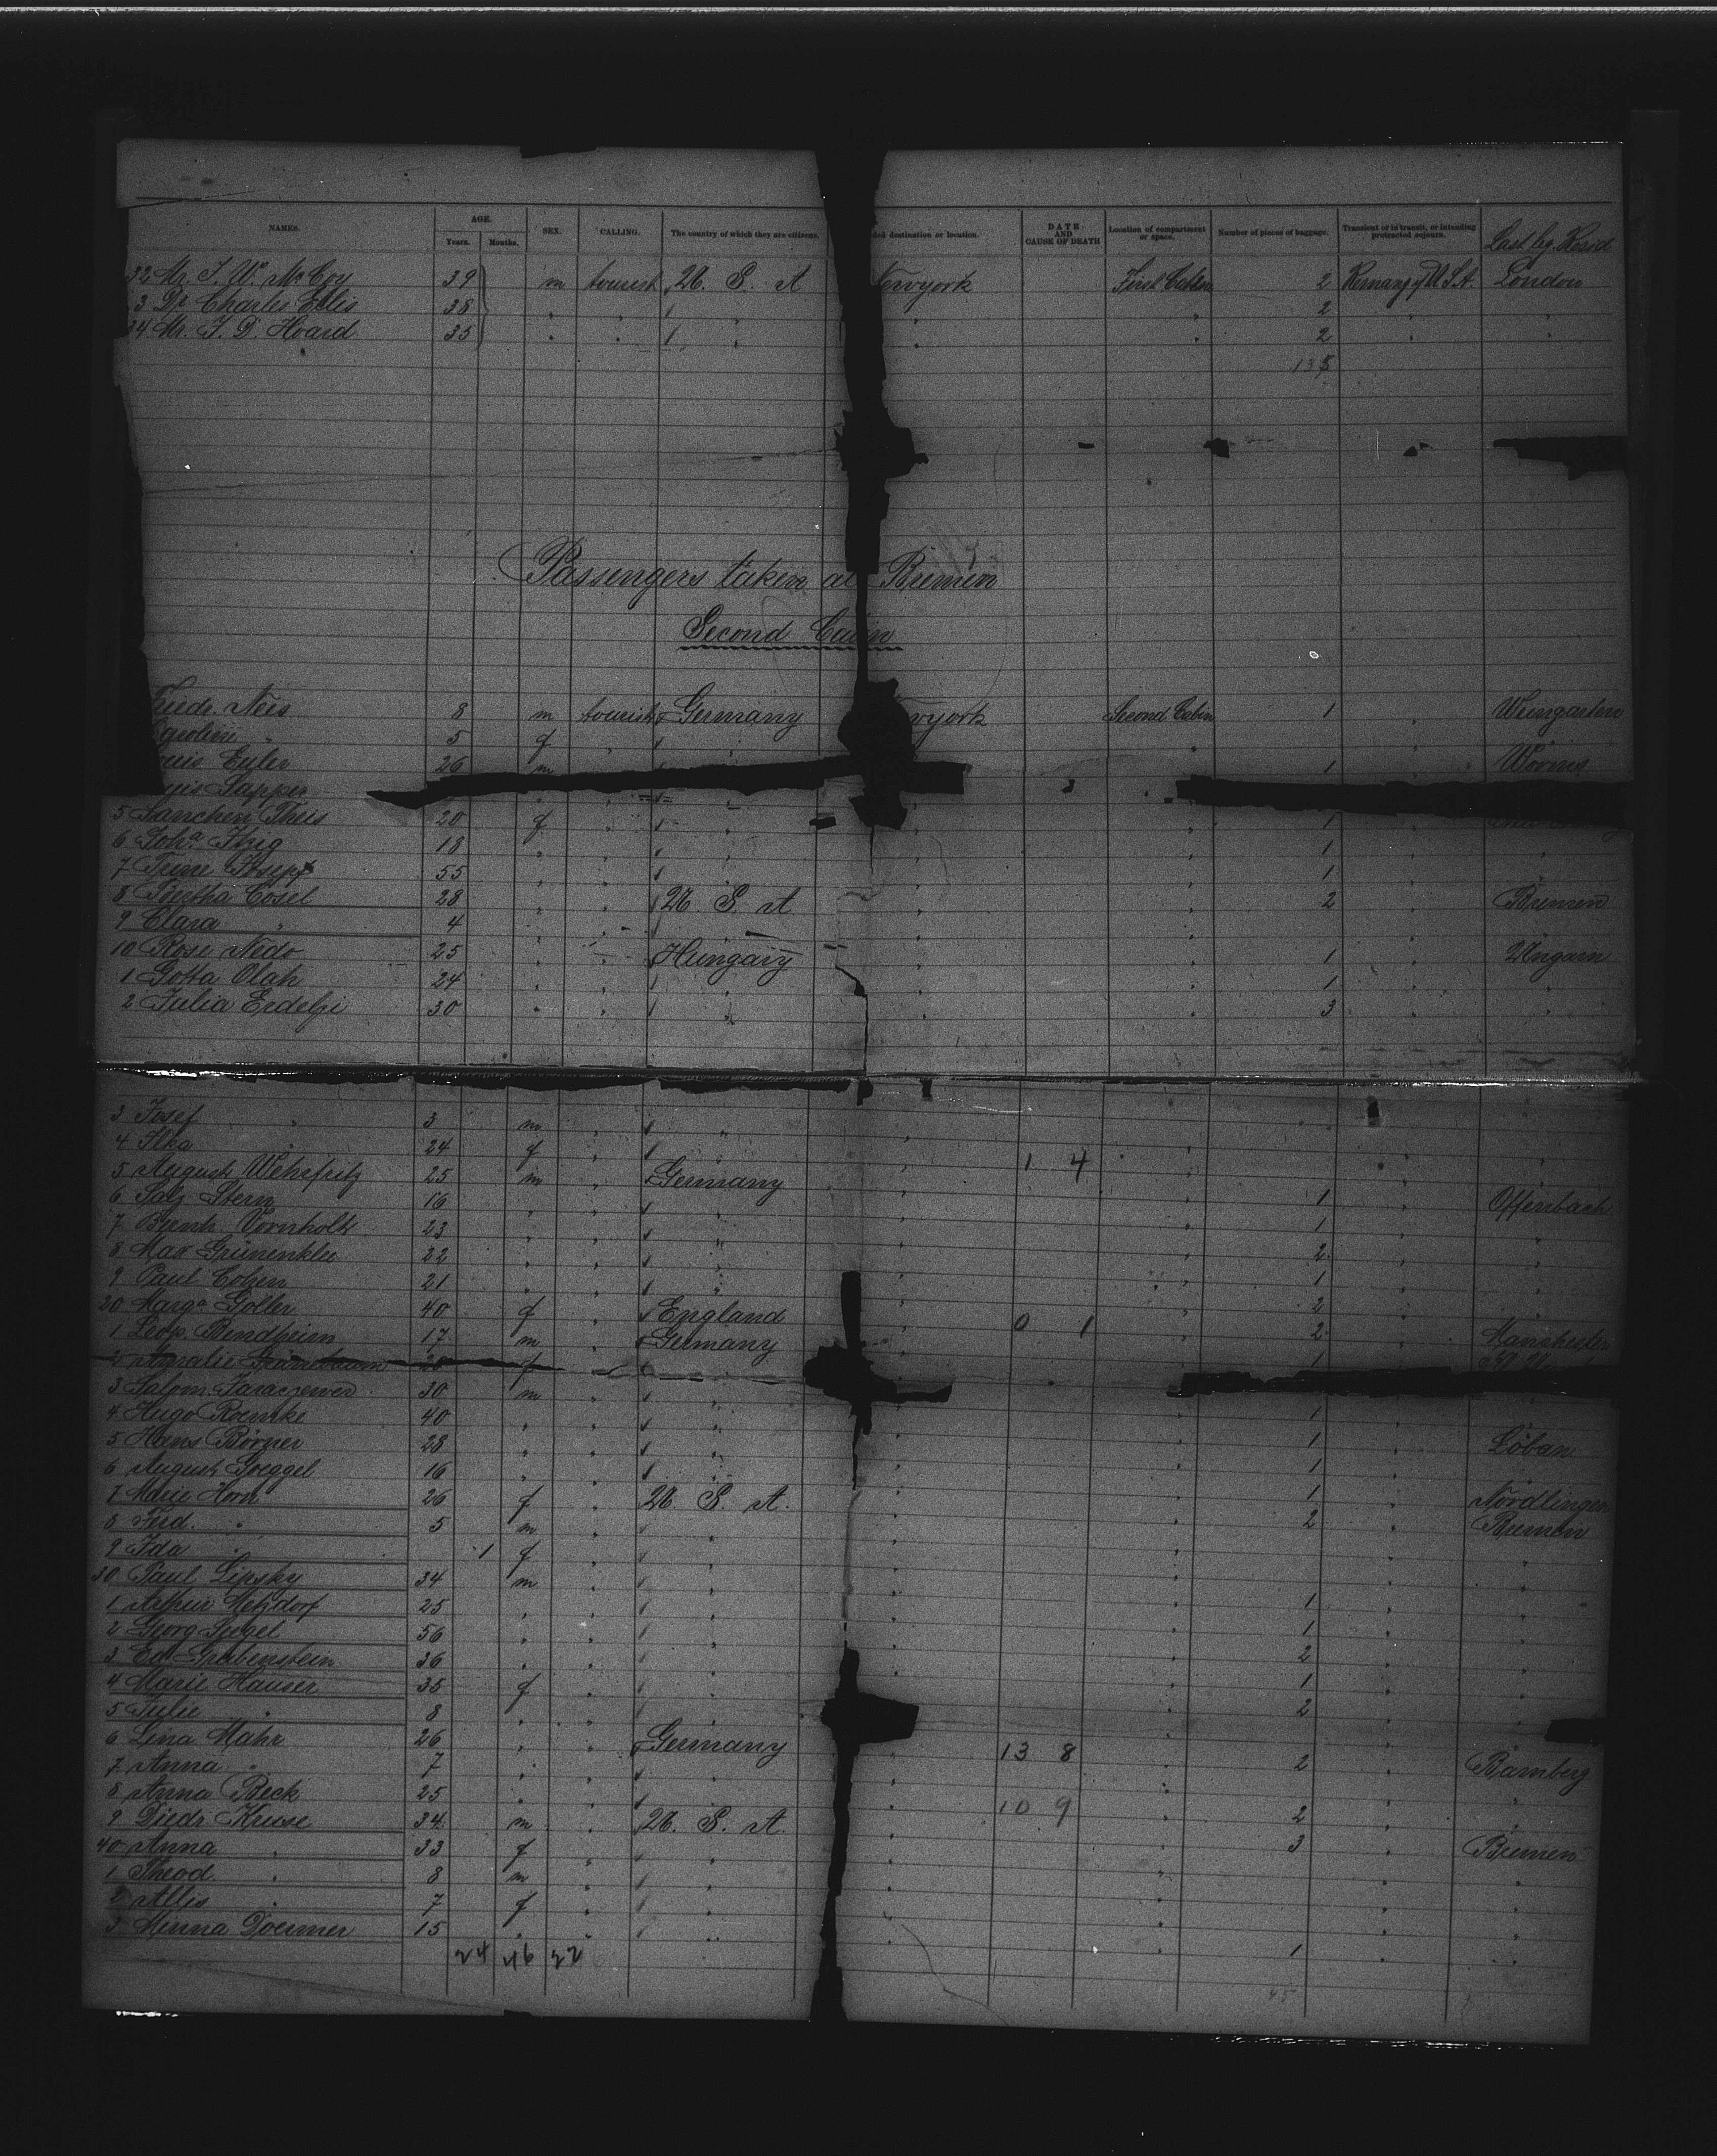 NAMES. AGE. Years. Months. SEX. CALLING. The country of which they are citizens. destination or location. DATE AND CAUSE OF DEATH Location of compartment or space. Number of pieces of baggage. Transient or in transit, or intending protracted sojourn. Last leg. Resid.
32 Mr. J. W. McCoy 39 m tourist U. S. A Newyork First Cabin 2 U.S.A. London
3 Dr. Charles Ellis 38 " " " " 2 " "
34 Mr. J. D. Hoard 35 " " " " " 2 " "
135
Passengers taken at Bremen
Second Cabin
Friedr. Neis 8 m tourist Germany Second Cabin 1 " Weingarten
" 5 f " " "
Euler 26 m 1 " Worms
Sapper
5 Sanchen Theis 20 f " " " 1
6 Joha. Itzig 18 " " " " 1 " "
7 Trine Josepf 55 " " " " 1 " "
8 Bertha Cosel 28 " " U. S. A " " 2 " Bremen
9 Clara " 4 " " " " " " "
10 Rose Nedo 25 " " Hungary " " 1 " Ungarn
1 Gotta Olah 24 " " " " " 1 " "
2 Julia Erdelyi 30 " " " " " 3 " "
3 Josef " 3 m " " "
4 Ilka " 24 f " " " 1 4 " "
5 August Wehrfritz 25 m " Germany " " 1 " Offenbach
6 Salz Stern 16 " " " " " 1 " "
7 Bernh. Vornholt 23 " " " " " 2 " "
8 Max Grünenklee 22 " " " " " 1 " "
9 Paul Cohen 21 " " " " " 2 " "
20 Marga. Goller 40 f " England " 0 1 " 2 " Manchester
1 Leop. Bendheim 17 m " Germany " " 1 "
2 Amalie Grünebaum 20 f
3 Salom. Jaraczewer 30 m " " " " 1
4 Hugo Roemke 40 " " " " " 1 " Löbau
5 Hans Börner 28 " " " " " 1 "
6 August Goeggel 16 " " " " " 1 " Nördlingen
7 Marie Horn 26 f " U. S. A. " " 2 " Bremen
8 Ferd. " 5 m " " " " " "
9 Ida " 1 f " " " " " "
30 Paul Lipsky 34 m " " " " 1 " "
1 Arthur Metzdorf 25 " " " " " 1 " "
2 Georg Siegel 56 " " " " " 2 " "
3 Ed. Grabenstein 36 " " " " " 1 " "
4 Marie Hauser 35 f " " " " 2 " "
5 Julie " 8 " " " "
6 Lina Mahr 26 " " Germany " 13 8 " 2 " Bamberg
7 Anna " 7 " " " " " " "
8 Anna Beck 25 " " " " 10 9 " 2 " "
9 Diedr. Kruse 34 m " U. S. A. " " 3 " Bremen
40 Anna " 33 f " " " " " "
1 Theod. " 8 m " " " " " "
2 Allis " 7 f " " " " " "
3 Minna Doermer 15 " " " " " 1 " "
24 46 22
45